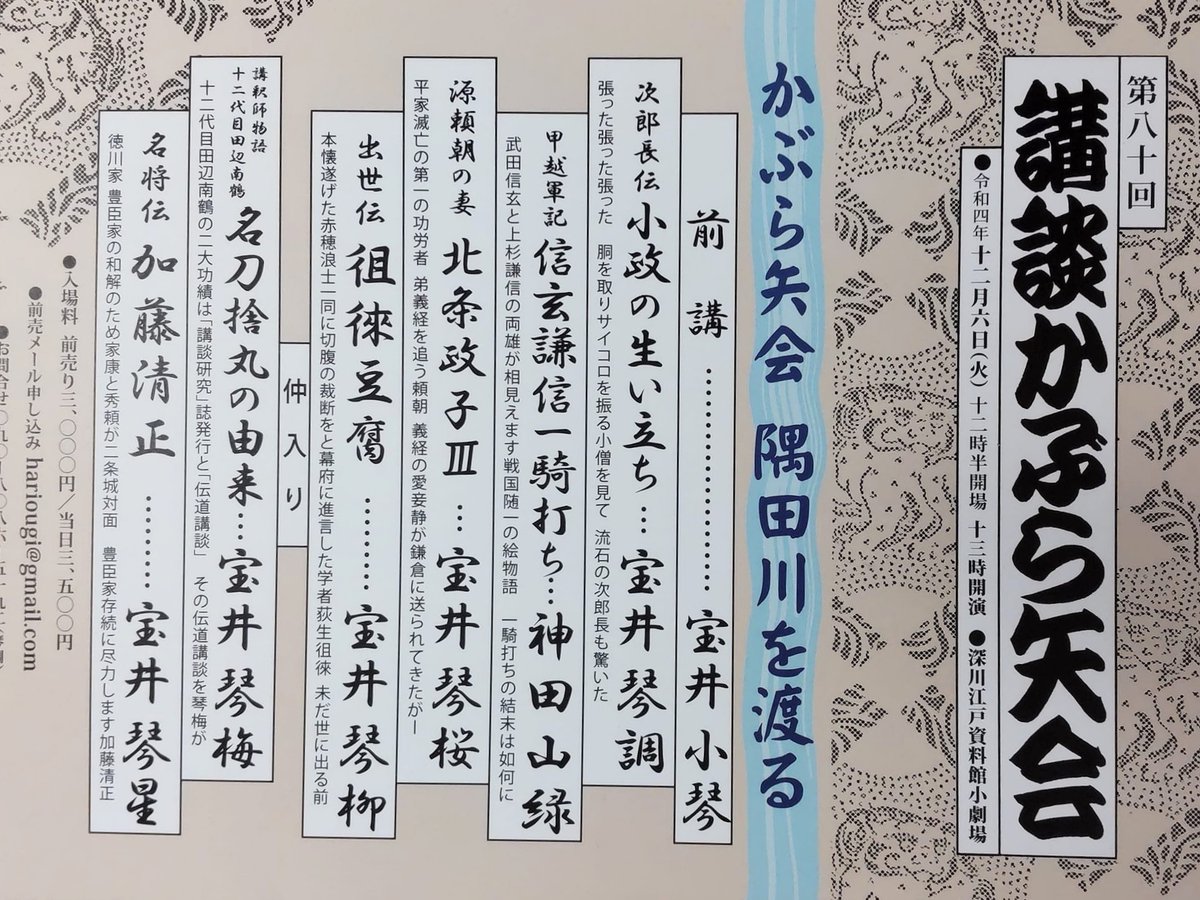 第八十回
講談かぶら矢会
●令和四年十二月六日(火) 十二時半開場 十三時開演 ●深川江戸資料館小劇場
かぶら矢会 隅田川を渡る
前講…………………宝井小琴
次郎長伝 小政の生い立ち…宝井琴調
張った張った 胴を取りサイコロを振る小僧を見て 流石の次郎長も驚いた
甲越軍記 信玄謙信一騎打ち…神田山緑
武田信玄と上杉謙信の両雄が相見えます戦国随一の絵物語 一騎打ちの結末は如何に
源頼朝の妻 北条政子Ⅲ…宝井琴桜
平家滅亡の第一の功労者 弟義経を追う頼朝 義経の愛妾静が鎌倉に送られてきたがー
出世伝 徂徠豆腐………宝井琴柳
本懐遂げた赤穂浪士一同に切腹の裁断をと幕府に進言した学者荻生徂徠 未だ世に出る前
仲入り
講釈師物語
十二代目田辺南鶴 名刀捨丸の由来…宝井琴梅
十二代目田辺南鶴の二大功績は「講談研究」誌発行と「伝道講談」 その伝道講談を琴梅が
名将伝 加藤清正………宝井琴星
徳川家 豊臣家の和解のため家康と秀頼が二条城対面 豊臣家存続に尽力します加藤清正
●入場料 前売り三、〇〇〇円／当日三、五〇〇円
●前売メール申し込み hariougi@gmail.com
●お問合せ